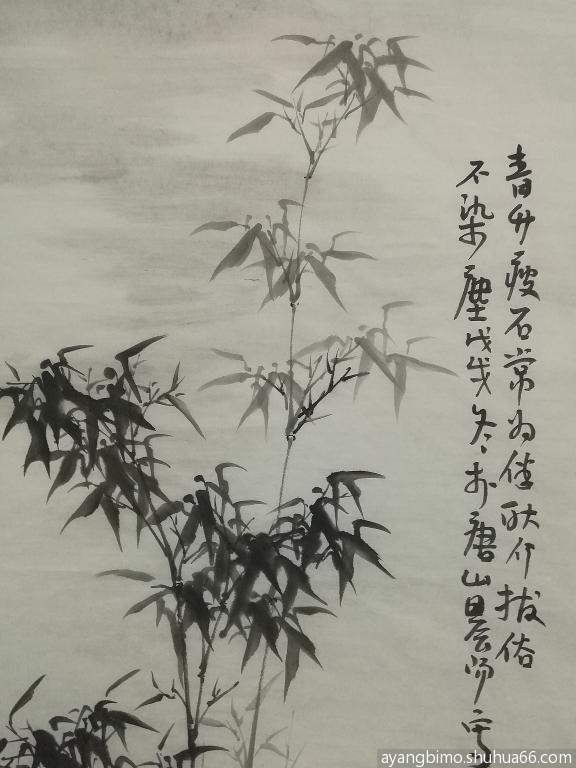 青竹瘦石常为伴耿介拔俗
不染塵戊戌冬於唐山墨
ayangbimo.shuhua66.com